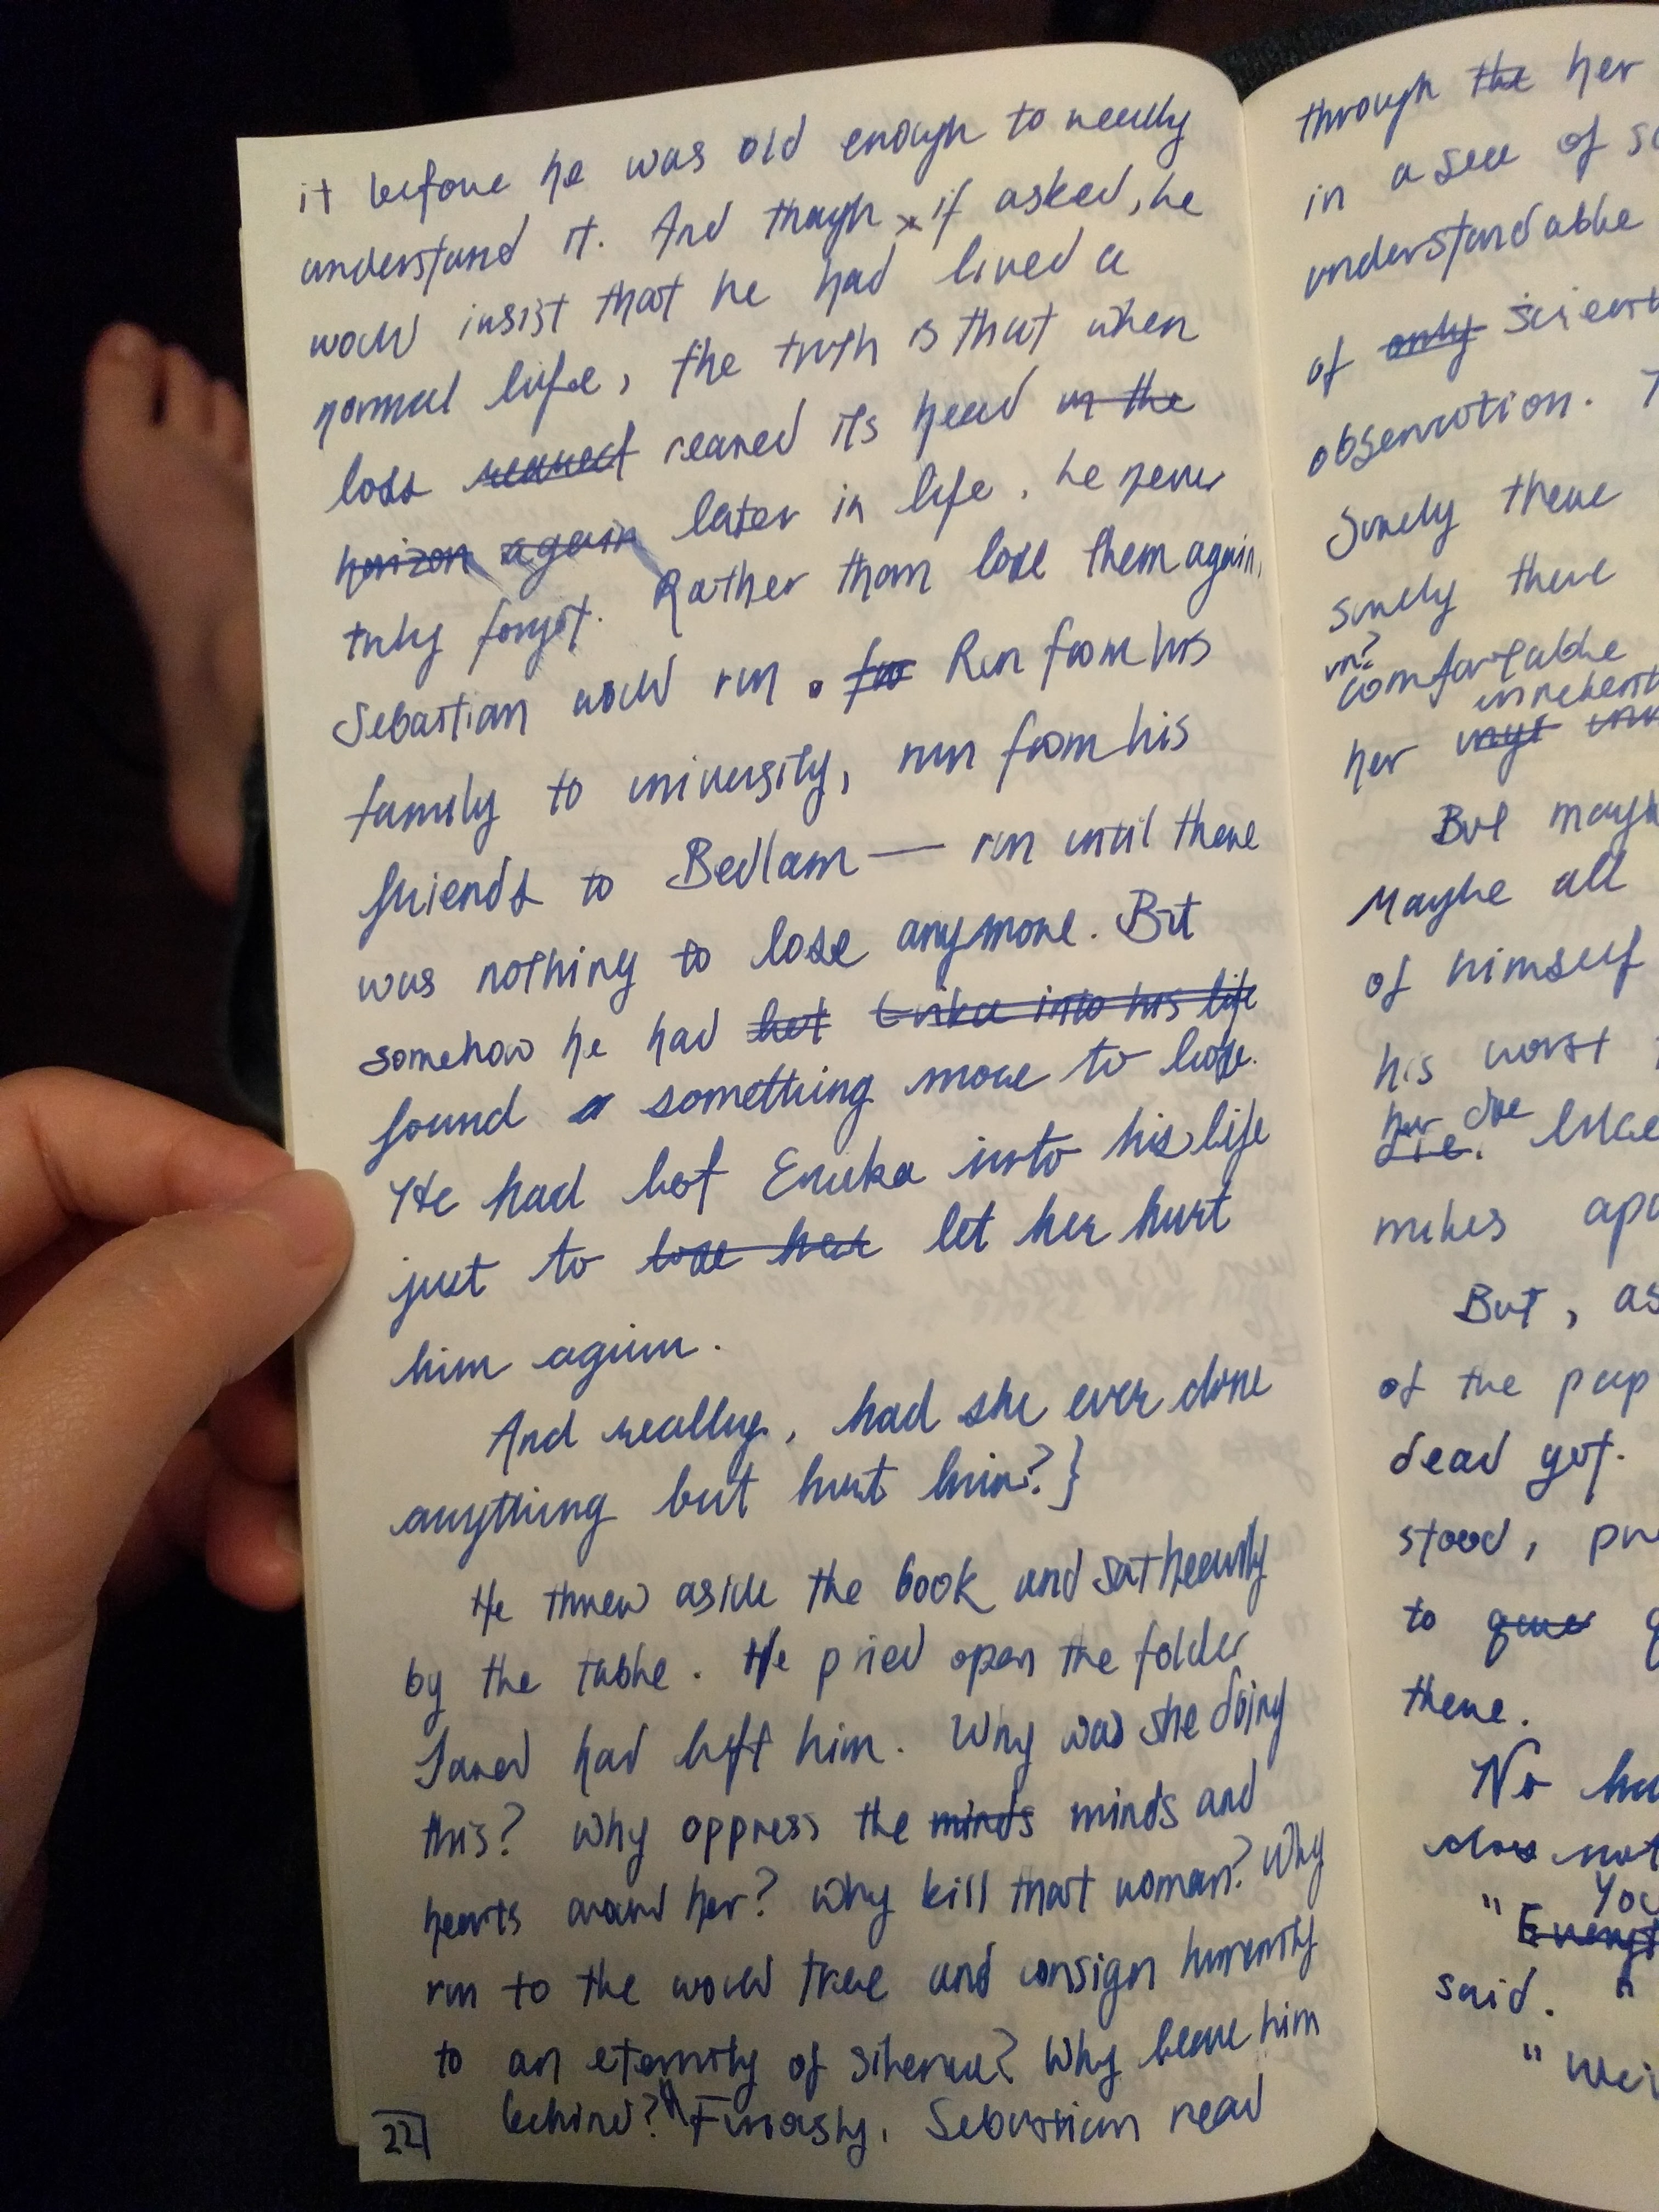 it before he was old enough to really
understand it. And though if asked, he
would insist that he had lived a
normal life, the truth is that when
loss reared its head in the
horizon again later in life, he never
truly forgot. Rather than lose them again,
Sebastian would run. for Run from his
family to university, run from his
friends to Bedlam — run until there
was nothing to lose anymore. But
somehow he had let Erika into his life
found a something more to lose.
He had let Erika into his life
just to lose her let her hurt
him again.
And really, had she ever done
anything but hurt him? }
He threw aside the book and sat heavily
by the table. He pried open the folder
Jared had left him. Why was she doing
this? Why oppress the minds minds and
hearts around her? Why kill that woman? Why
run to the world tree and consign humanity
to an eternity of silence? Why leave him
behind? Furiously, Sebastian read
221
through the her
in a sea of
understandable
of only scient
observation.
Surely there
surely there
un?
comfortable
her
But mayb
Maybe all
of himself
his worst
her die
die. Like
makes
But, as
of the
dead yet.
stood,
to
there.
No
does not
You
"
said. "
"